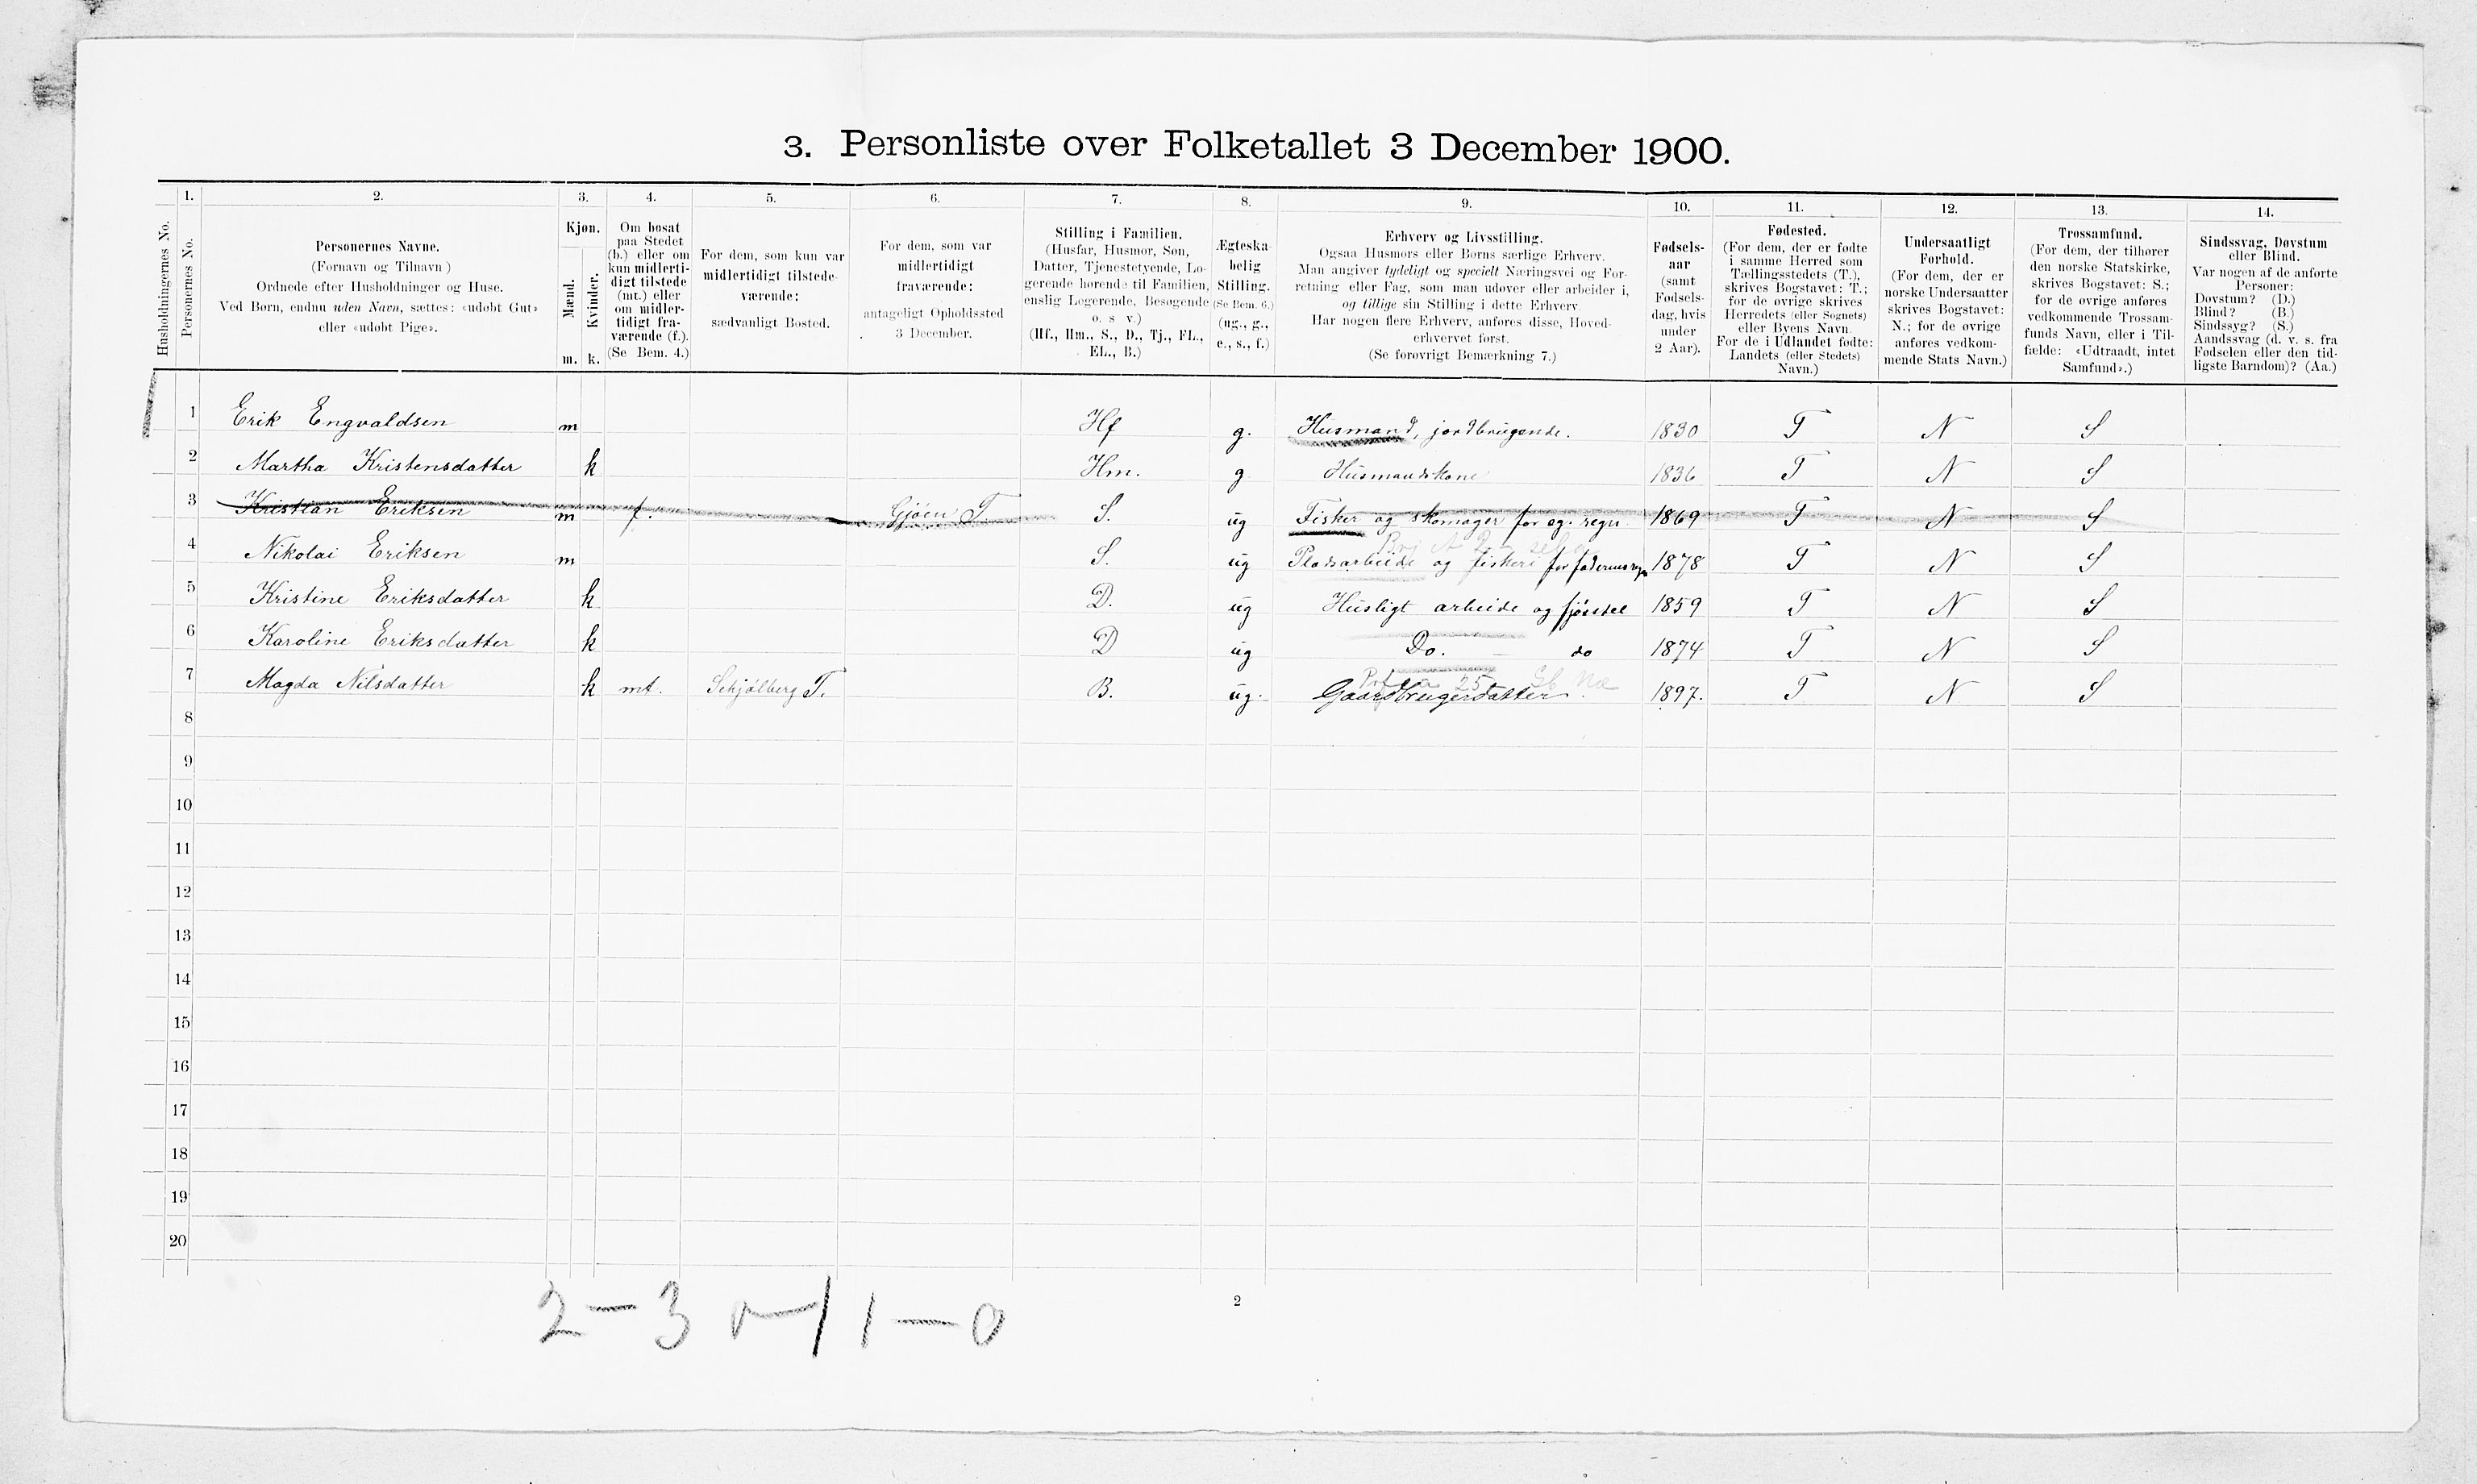 3. Personliste over Folketallet 3 December 1900.
1. 2. 3. 4. 5. 6. 7. 8. 9. 10. 11. 12. 13. 14.
Husholdningernes No.
Personernes No.
Personernes Navne.
(Fornavn og Tilnavn)
Ordnede efter Husholdninger og Huse.
Ved Børn, endnu uden Navn, sættes: «udøbt Gut»
eller «udøbt Pige».
Kjøn.
Mænd.
Kvinder.
m. k.
Om bosat
paa Stedet
(b.) eller om
kun midlerti-
digt tilstede
(mt.) eller
om midler-
tidigt fra-
værende (f.).
(Se Bem. 4.)
For dem, som kun var
midlertidigt tilstede-
værende:
sædvanligt Bosted.
For dem, som var
midlertidigt
fraværende:
antageligt Opholdssted
3 December.
Stilling i Familien.
(Husfar, Husmor, Søn,
Datter, Tjenestetyende, Lo-
gerende hørende til Familien,
enslig Logerende, Besøgende
o. s v.)
(Hf., Hm., S., D., Tj., FL.,
EL., B.)
Ægteska-
belig
Stilling.
(Se Bem. 6.)
(ug., g.,
e., s., f.)
Erhverv og Livsstilling.
Ogsaa Husmors eller Børns særlige Erhverv.
Man angiver tydeligt og specielt Næringsvei og For-
retning eller Fag, som man udøver eller arbeider i,
og tillige sin Stilling i dette Erhverv.
Har nogen flere Erhverv, anføres disse, Hoved-
erhvervet først.
(Se forøvrigt Bemærkning 7.)
Fødsels-
aar
(samt
Fødsels-
dag, hvis
under
2 Aar).
Fødested.
(For dem, der er fødte
i samme Herred som
Tællingsstedets (T.),
skrives Bogstavet: T.;
for de øvrige skrives
Herredets (eller Sognets)
eller Byens Navn.
For de i Udlandet fødte:
Landets (eller Stedets)
Navn.)
Undersaatligt
Forhold.
(For dem, der er
norske Undersaatter
skrives Bogstavet:
N.; for de øvrige
anføres vedkom-
mende Stats Navn.)
Trossamfund.
(For dem, der tilhører
den norske Statskirke,
skrives Bogstavet: S.;
for de øvrige anføres
vedkommende Trossam-
funds Navn, eller i Til-
fælde: «Udtraadt, intet
Samfund».)
Sindssvag, Døvstum
eller Blind.
Var nogen af de anførte
Personer:
Døvstum? (D.)
Blind? (B.)
Sindssyg? (S.)
Aandssvag (d. v. s. fra
Fødselen eller den tid-
ligste Barndom)? (Aa.)
1 Erik Engvaldsen m Hf g. Husmand, jordbrugende. 1830 T N S
2 Martha Kristensdatter k Hm. g. Husmandskone 1836 T N S
3 Kristian Eriksen m f. Gjøen T. S. ug Fisker og skomager for eg. regn. 1869 T N S
4 Nikolai Eriksen m S. ug Pladsarbeide og fiskeri for faderens regn 1878 T N S
5 Kristine Eriksdatter k D. ug Husligt arbeide og fjøsstel 1859 T N S
6 Karoline Eriksdatter k D ug Do. do 1874 T N S
7 Magda Nilsdatter k mt. Schjølberg T. B. ug. Gaardbrugerdatter. 1897. T N S
8
9
10
11
12
13
14
15
16
17
18
19
20
2
2 — 3 1 — 0